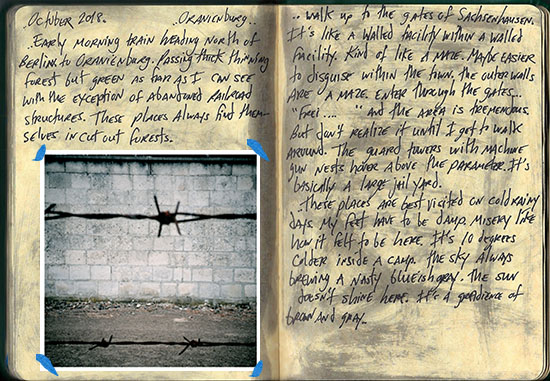 October 2018. ..Oranienburg..
..Early morning train heading north of
Berlin to Oranienburg. Passing thick thinning
forest but green as far as I can see
with the exception of abandoned railroad
structures. These places always find them-
selves in cut out forests.
.. walk up to the gates of Sachsenhausen.
It's like a walled facility within a walled
facility. Kind of like a maze. Maybe easier
to disguise within the town. The outer walls
are a maze. Enter through the gates...
"Frei .... " and the area is tremendous.
But don't realize it until I got to walk
around. The guard towers with machine
gun nests hover above the parameter. It's
basically a large jail yard.
..These places are best visited on cold rainy
days. My feet have to be damp. Misery like
how it felt to be here. It's 10 degrees
colder inside a camp. The sky always
brewing a nasty blueish gray. The sun
doesn't shine here. It's a gradience of
brown and gray..